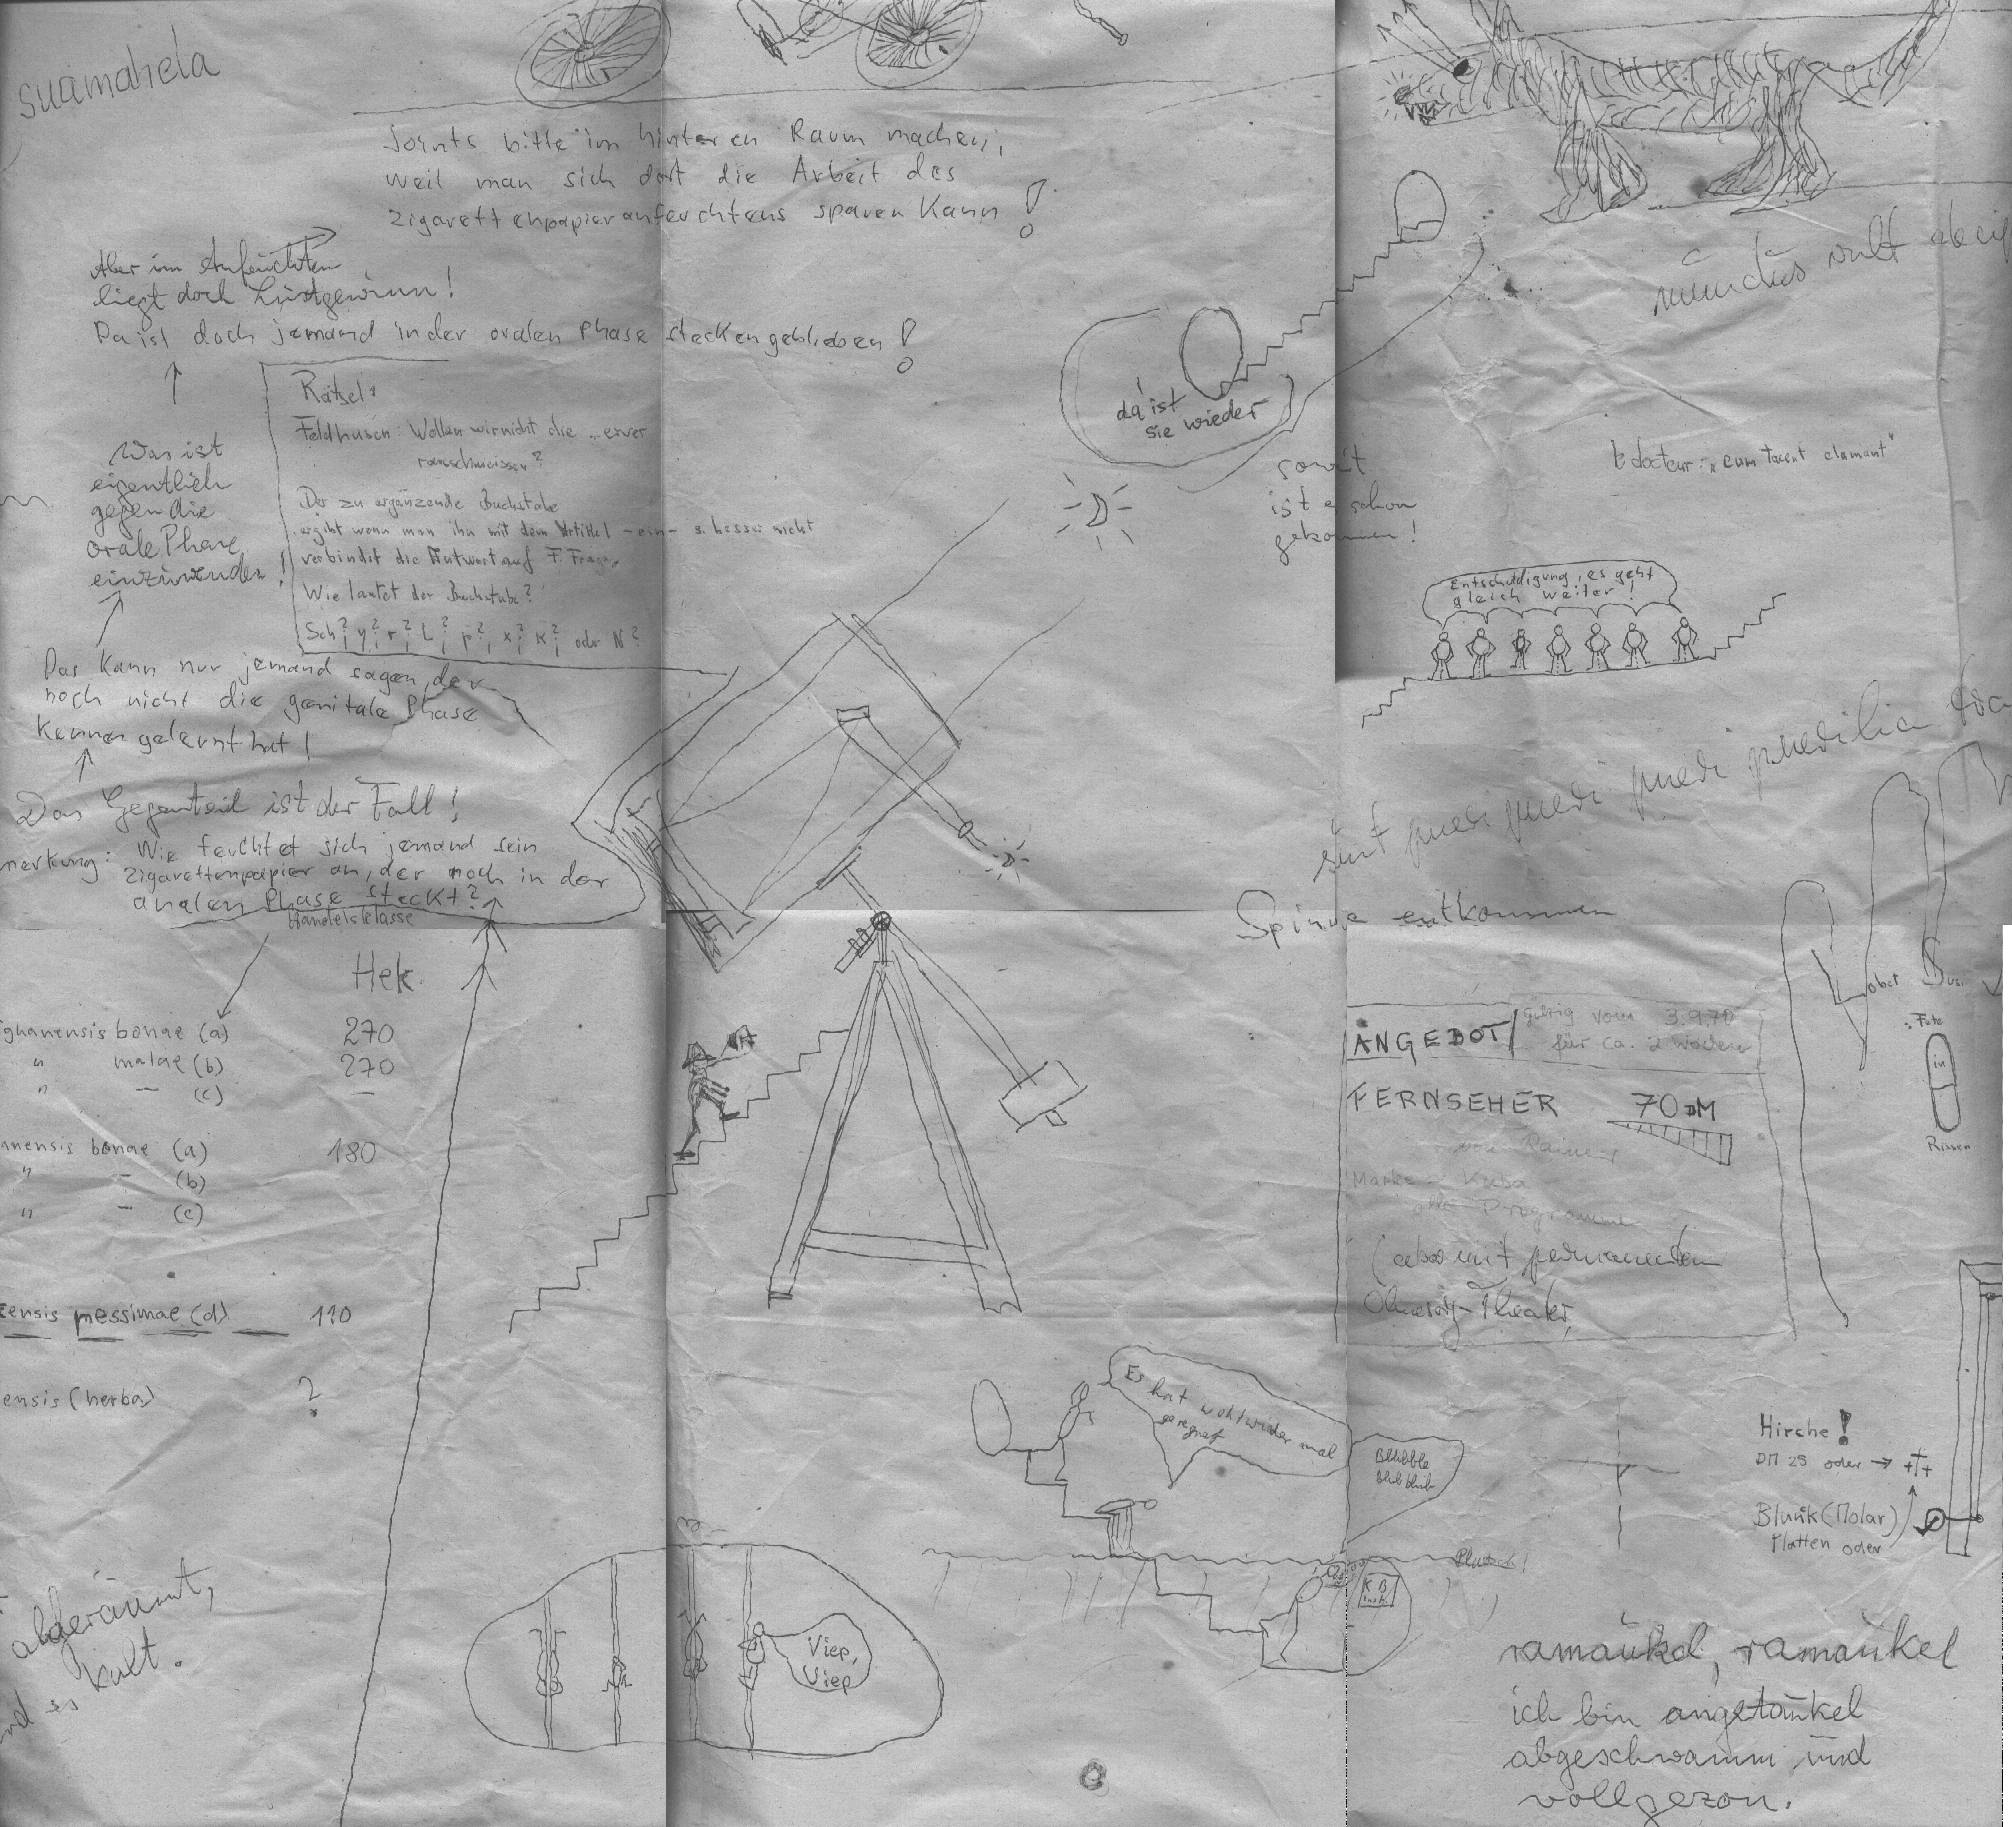 suamahela
Joints bitte im hinteren Raum machen,
weil man sich dort die Arbeit des
zigarettenpapieranfeuchtens sparen kann!
Aber im Anfeuchten
liegt doch Lustgewinn!
Da ist doch jemand in der oralen Phase steckengeblieben!
Was ist
eigentlich
gegen die
orale Phase
einzuwenden!
Rätsel:
Feldhusen: Wollen wir nicht die
rausschmeissen?
Der zu ergänzende Buchstabe
ergibt wenn man ihn mit dem Artikel -ein- s. besser nicht
verbindet die Antwort auf F. Frage.
Wie lautet der Buchstabe?
Sch? y? r? L? p? x? K? oder N?
Das kann nur jemand sagen, der
noch nicht die genitale Phase
kennengelernt hat!
Das Gegenteil ist der Fall!
merkung: Wie feuchtet sich jemand sein
zigarettenpapier an, der noch in der
analen Phase steckt?
Handelsklasse
Hek.
ghanensis bonae (a) 270
" malae (b) 270
" — (c) —
nensis bonae (a) 180
" — (b)
" — (c)
ensis pessimae (d) 110
ensis (herba) ?
abgeräumt,
kult.
da ist
sie wieder
soweit
ist es schon
gekommen!
mundus vult decip
le docteur: "cum tacent clamant"
Entschuldigung, es geht
gleich weiter!
sunt pueri pueri pueri puerilia
Spinne entkommen
ANGEBOT gültig vom 3.9.70
für ca. 2 Wochen
FERNSEHER 70 DM
von Rainer
Marke - Kuba
alle Programme
(aber mit permanentem
Ohnsorg-Theater
in
Rissen
Es hat wohl wieder mal
geregnet
Blubbble
blub blub
Platsch!
KB
Viep,
Viep
Hirche!
DM 25 oder →
Blunk (Molar)
Platten oder
ramaükel, ramaükel
ich bin angetaükel
abgeschwamm und
vollgezon.